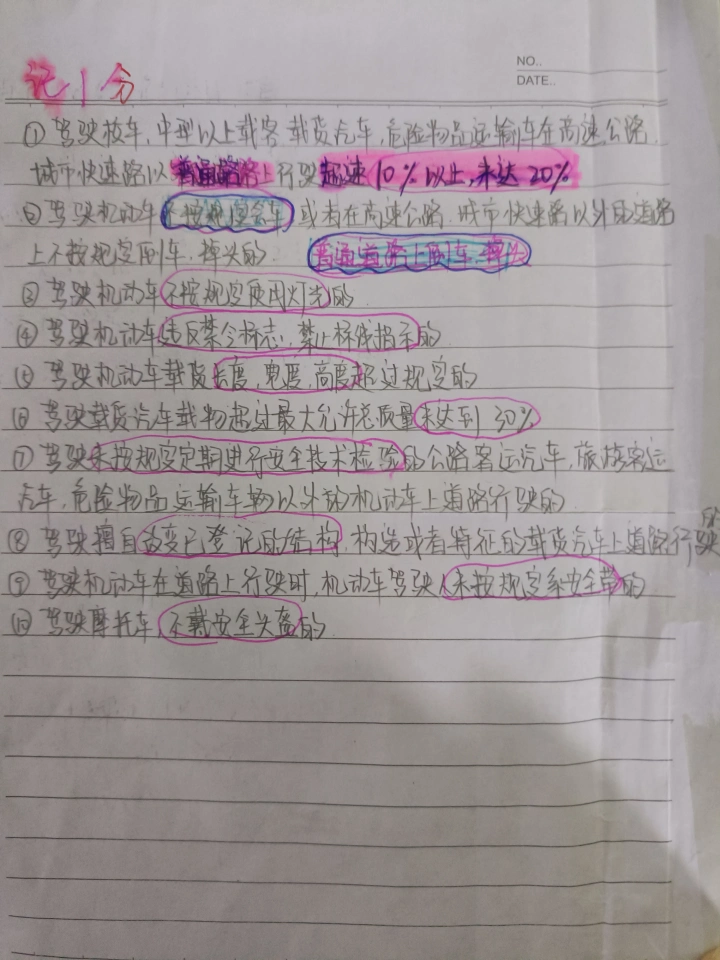 NO..
DATE..
记1分
① 驾驶校车、中型以上载客载货汽车、危险物品运输车在高速公路、
城市快速路以普通道路上行驶超速10%以上,未达20%
② 驾驶机动车不按规定会车,或者在高速公路、城市快速路以外的道路
上不按规定倒车、掉头的. 普通道路上倒车、掉头
③ 驾驶机动车不按规定使用灯光的.
④ 驾驶机动车违反禁令标志、禁止标线指示的.
⑤ 驾驶机动车载货长度,宽度,高度超过规定的
⑥ 驾驶载货汽车载物超过最大允许总质量未达到30%
⑦ 驾驶未按规定定期进行安全技术检验的公路客运汽车,旅游客运
汽车、危险物品运输车辆以外的机动车上道路行驶的
⑧ 驾驶擅自改变已登记的结构、构造或者特征的载货汽车上道路行驶的
⑨ 驾驶机动车在道路上行驶时,机动车驾驶人未按规定系安全带的
⑩ 驾驶摩托车,不戴安全头盔的.